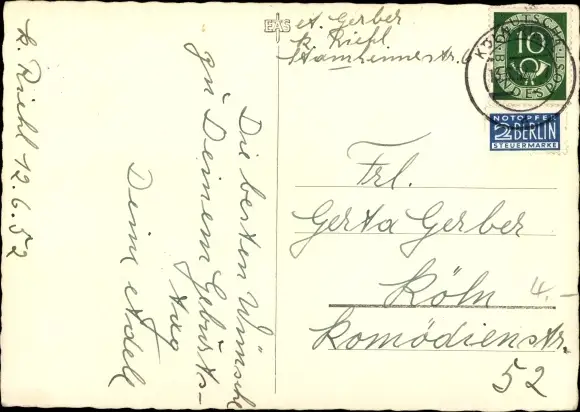 K. Riehl 12.6.52
Die besten Wünsche
zu Deinem Geburts-
tag
Deine Adele
EAS
A. Gerber
K. Riehl
Frl.
Gerta Gerber
Köln
Komödienstr.
52
4.-
DEUTSCHE
BUNDESPOST
10
NOTOPFER
2 BERLIN
STEUERMARKE